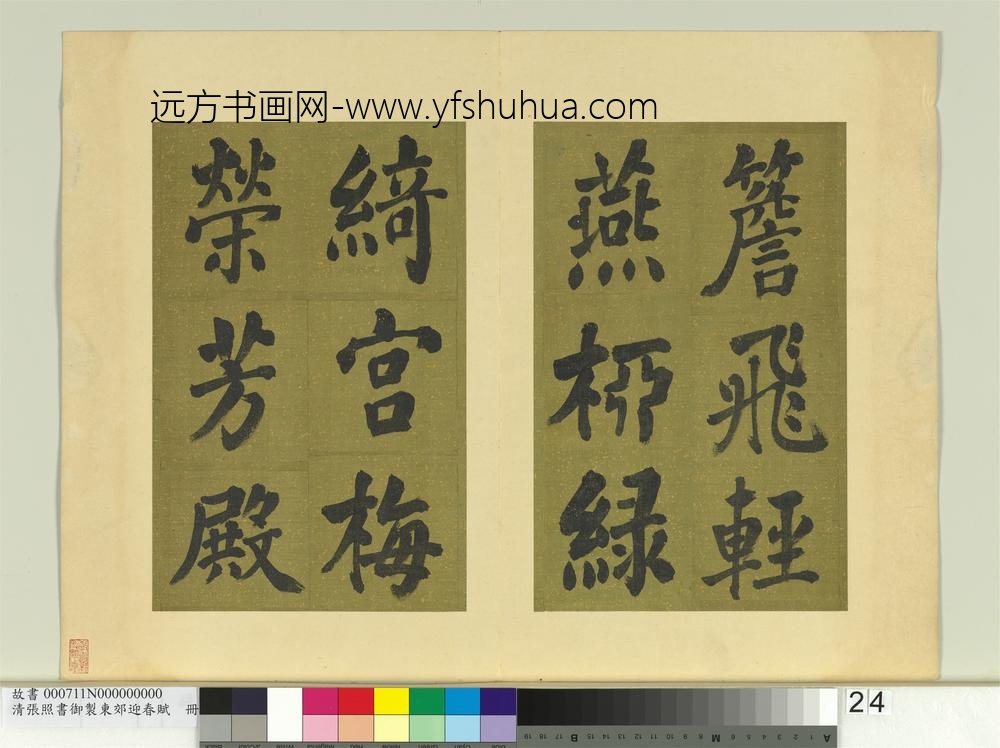 远方书画网-www.yfshuhua.com
簷飛輕
燕栁綠
綺宮梅
榮芳殿
故書 000711N000000000
清張照書御製東郊迎春賦 冊
24